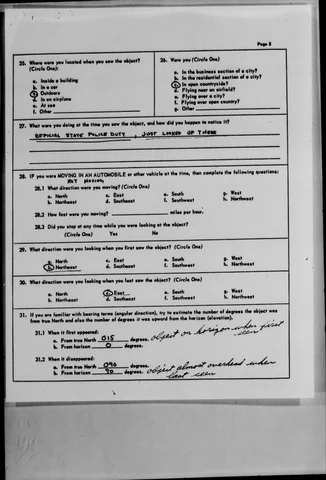 Page 5
25. Where were you located when you saw the object?
(Circle One):
a. Inside a building
b. In a car
c. Outdoors
d. In an airplane
e. At sea
f. Other
26. Were you (Circle One)
a. In the business section of a city?
b. In the residential section of a city?
c. In open countryside?
d. Flying near an airfield?
e. Flying over a city?
f. Flying over open country?
g. Other
27. What were you doing at the time you saw the object, and how did you happen to notice it?
OFFICIAL STATE POLICE DUTY, JUST LOOKED UP THERE
28. IF you were MOVING IN AN AUTOMOBILE or other vehicle at the time, then complete the following questions:
NOT MOVING
28.1 What direction were you moving? (Circle One)
a. North c. East e. South g. West
b. Northeast d. Southeast f. Southwest h. Northwest
28.2 How fast were you moving? miles per hour.
28.3 Did you stop at any time while you were looking at the object?
(Circle One) Yes No
29. What direction were you looking when you first saw the object? (Circle One)
a. North c. East e. South g. West
b. Northeast d. Southeast f. Southwest h. Northwest
30. What direction were you looking when you last saw the object? (Circle One)
a. North c. East e. South g. West
b. Northeast d. Southeast f. Southwest h. Northwest
31. If you are familiar with bearing terms (angular direction), try to estimate the number of degrees the object was
from true North and also the number of degrees it was upward from the horizon (elevation).
31.1 When it first appeared:
a. From true North 015 degrees. object on horizon when first
b. From horizon 0 degrees. seen
31.2 When it disappeared:
a. From true North 090 degrees. object almost overhead when
b. From horizon 70 degrees. last seen